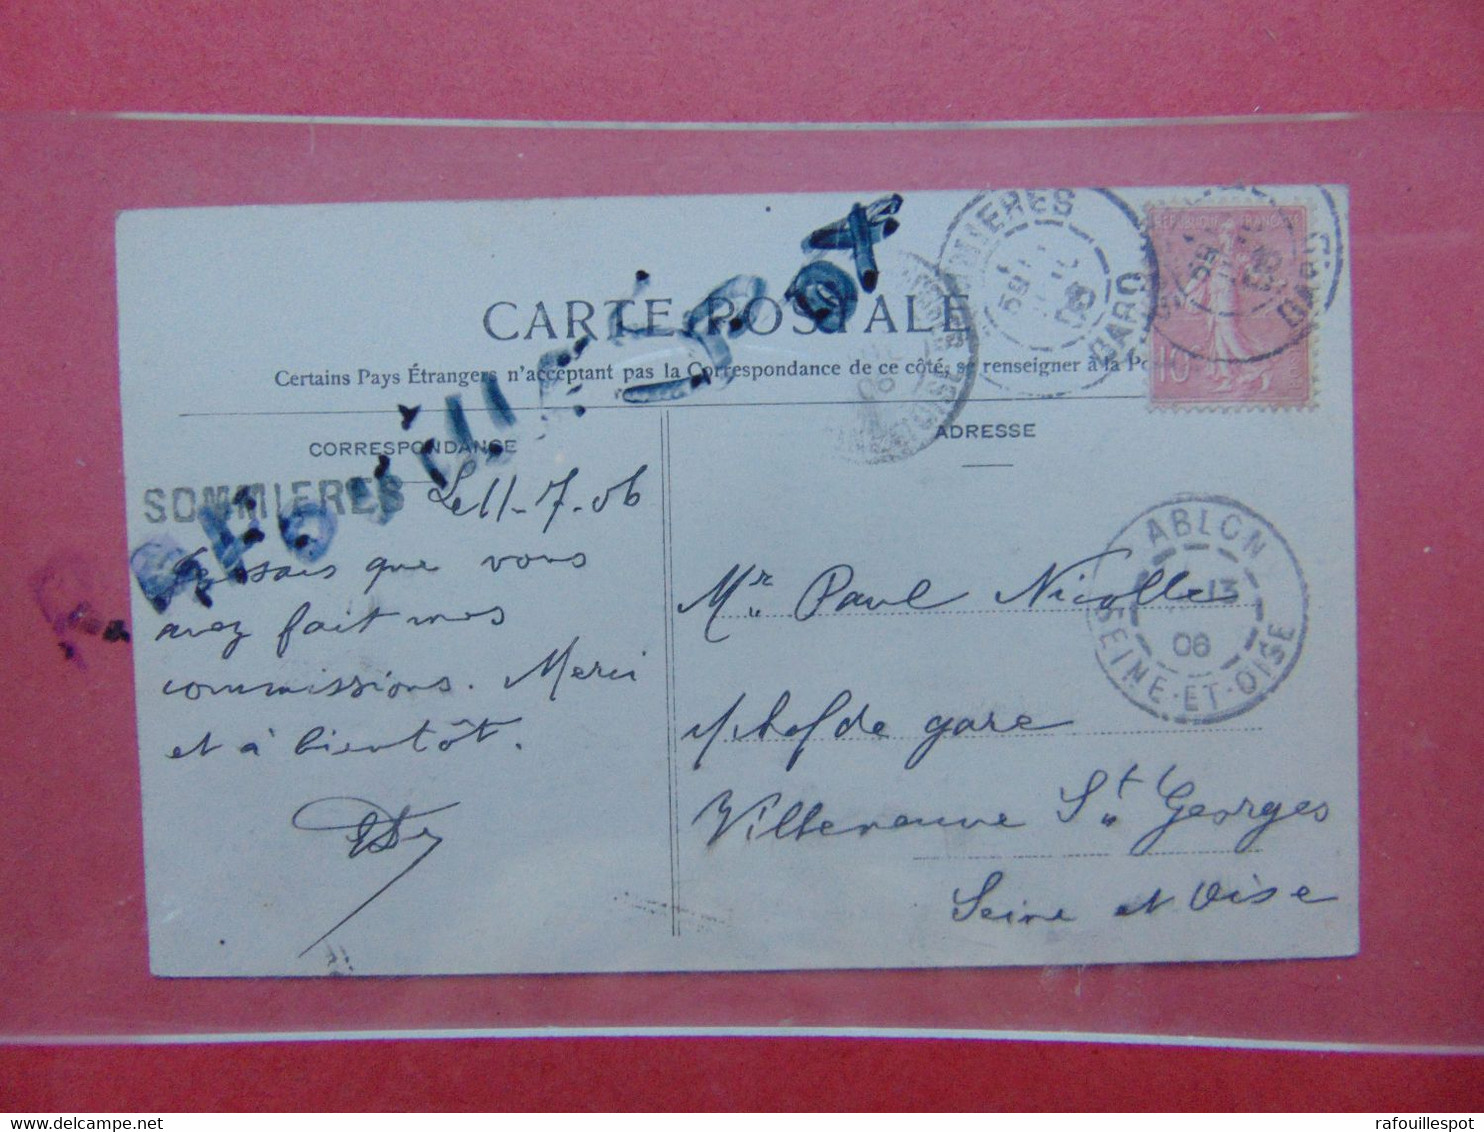 CARTE POSTALE
Certains Pays Étrangers n'acceptant pas la Correspondance de ce côté, se renseigner à la Po
CORRESPONDANCE
ADRESSE
SOMMIERES
Le 11-7-06
Je sais que vous
avez fait mes
commissions. Merci
et à bientôt.
Mr Paul Nicolle
s/chef de gare
Villeneuve St Georges
Seine et Oise
SOMMIERES
GARD
REPUBLIQUE FRANÇAISE
10c
ABLON
13
06
SEINE-ET-OISE
rafouillespot